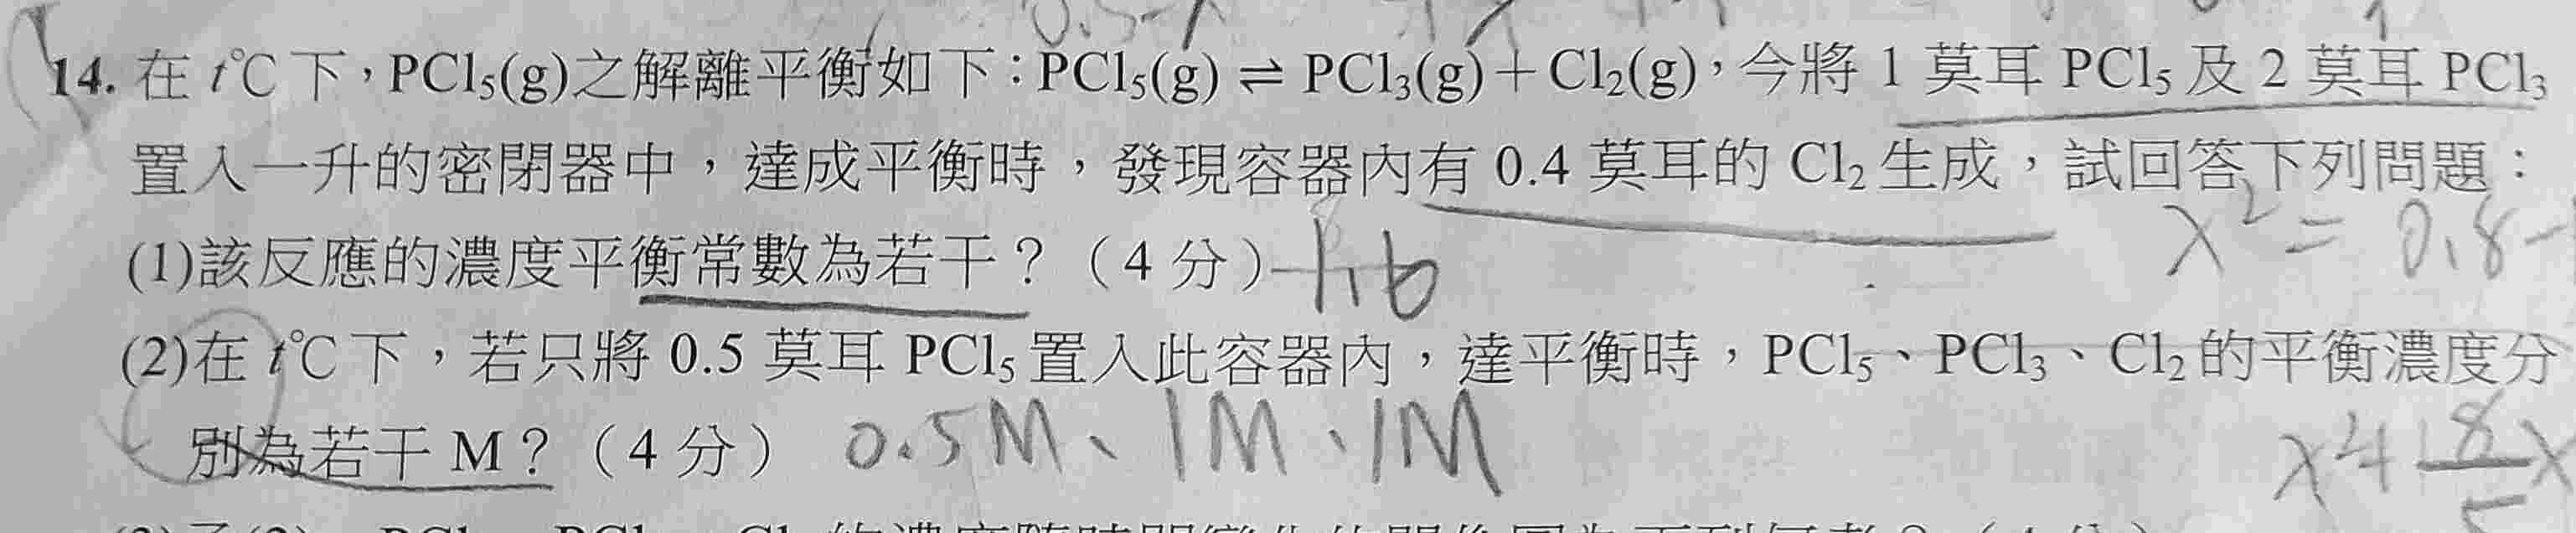 14. 在 t℃ 下，PCl₅(g)之解離平衡如下：PCl₅(g) ⇌ PCl₃(g)＋Cl₂(g)，今將 1 莫耳 PCl₅ 及 2 莫耳 PCl₃
置入一升的密閉器中，達成平衡時，發現容器內有 0.4 莫耳的 Cl₂ 生成，試回答下列問題：
x² = 0.8-
(1)該反應的濃度平衡常數為若干？（4 分）1.6
(2)在 t℃ 下，若只將 0.5 莫耳 PCl₅ 置入此容器內，達平衡時，PCl₅、PCl₃、Cl₂ 的平衡濃度分
別為若干 M？（4 分） 0.5M、1M、1M